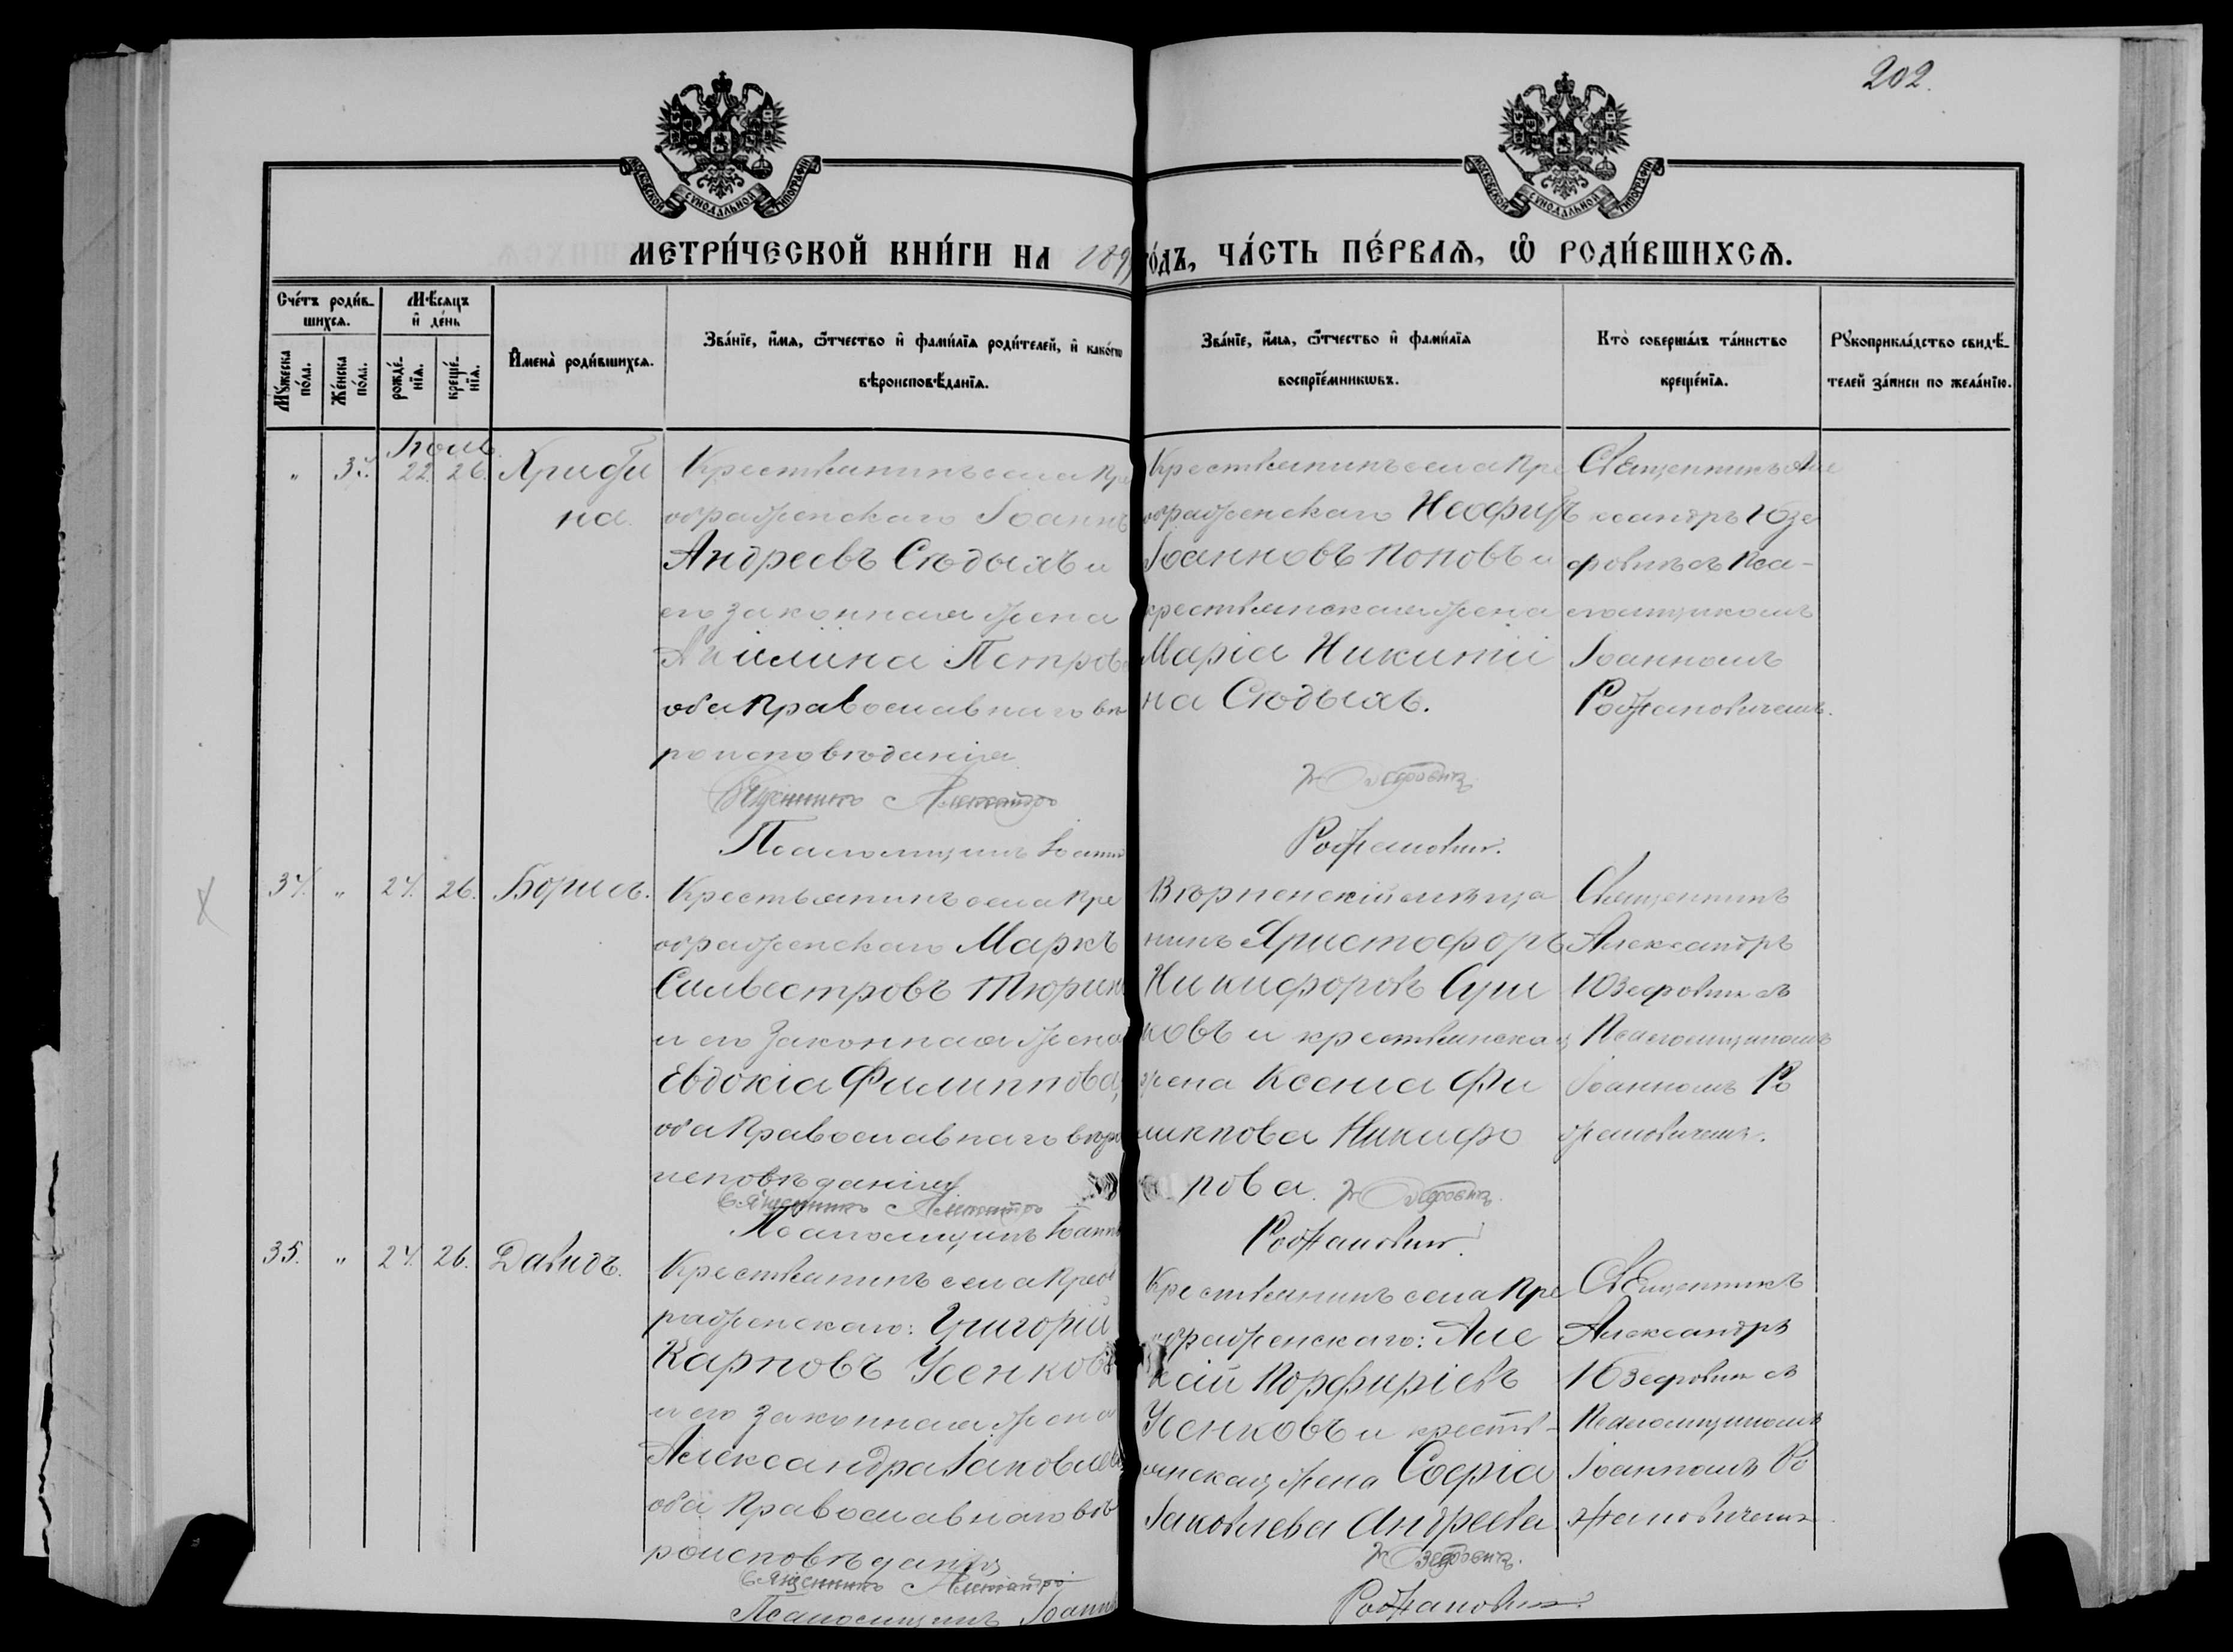 202.
МОСКОВСКОЙ СѴНОДАЛЬНОЙ ТИПОГРАФІИ
МОСКОВСКОЙ СѴНОДАЛЬНОЙ ТИПОГРАФІИ
МЕТРИ́ЧЕСКОЙ КНИ́ГИ НА 189
О́ДЪ, ЧА́СТЬ ПЕ́РВАѦ, Ѡ РОДИ́ВШИХСѦ.
Сче́тъ роди́в-
шихсѧ.
Мꙋ́жеска по́ла.
Же́нска по́ла.
Мѣ́сѧцъ
и де́нь
рожде́-
нїѧ.
креще́-
нїѧ.
Имена̀ роди́вшихсѧ.
Зва́нїе, и́мѧ, ѻ́тчество и фами́лїѧ роди́телей, и како́гѡ
вѣроисповѣ́данїѧ.
Зва́нїе, и́мѧ, ѻ́тчество и фами́лїѧ
воспрїе́мникѡвъ.
Кто̀ соверша́лъ та́инство
креще́нїѧ.
Рꙋкоприкла́дство свидѣ́-
телей за́писи по жела́нїю.
Іюль
" 22. 26. Христи
на.
Крестьянинъ села Пре
ображенскаго Іоаннъ
Андреевъ Сѣдыхъ и
его законная жена
Петров
оба Православнаго вѣ
роисповѣданія
Священникъ Александръ
Псаломщикъ Іоанн
Крестьянинъ села Пре
ображенскаго Неофитъ
Іоанновъ Поповъ и
крестьянская жена
Марія Никити
на Сѣдыхъ.
Юзефовичъ
Рожановичъ.
Священникъ Але
ксандръ Юзе
фовичъ съ Пса-
ломщикомъ
Іоанномъ
Рожановичемъ.
34. " 24. 26. Борисъ.
Крестьянинъ села Пре
ображенскаго Маркъ
Сильвестровъ Тюрин
и его законная жена
Евдокія Филиппова,
оба Православнаго вѣро
исповѣданія
Священникъ Александръ
Псаломщикъ Іоанн
Вѣрненскій мѣща
нинъ Христофоръ
Никифоровъ Суш
ковъ и крестьянская
жена Ксенія Фи
липпова Никифо
рова.
Юзефовичъ.
Рожановичъ.
Священникъ
Александръ
Юзефовичъ съ
Псаломщикомъ
Іоанномъ Ро
жановичемъ.
35. " 24. 26. Давидъ.
Крестьянинъ села Преоб
раженскаго: Григорій
Карповъ Усенковъ
и его законная жена
Александра Іаковлев
оба Православнаго вѣ
роисповѣданія
Священникъ Александръ
Псаломщикъ Іоанн
Крестьянинъ села Пре
ображенскаго: Але
ксій Порфиріевъ
Усенковъ и кресть-
янская жена Софія
Іаковлева Андреева.
Юзефовичъ.
Рожановичъ.
Священникъ
Александръ
Юзефовичъ съ
Псаломщикомъ
Іоанномъ Ро
жановичемъ.